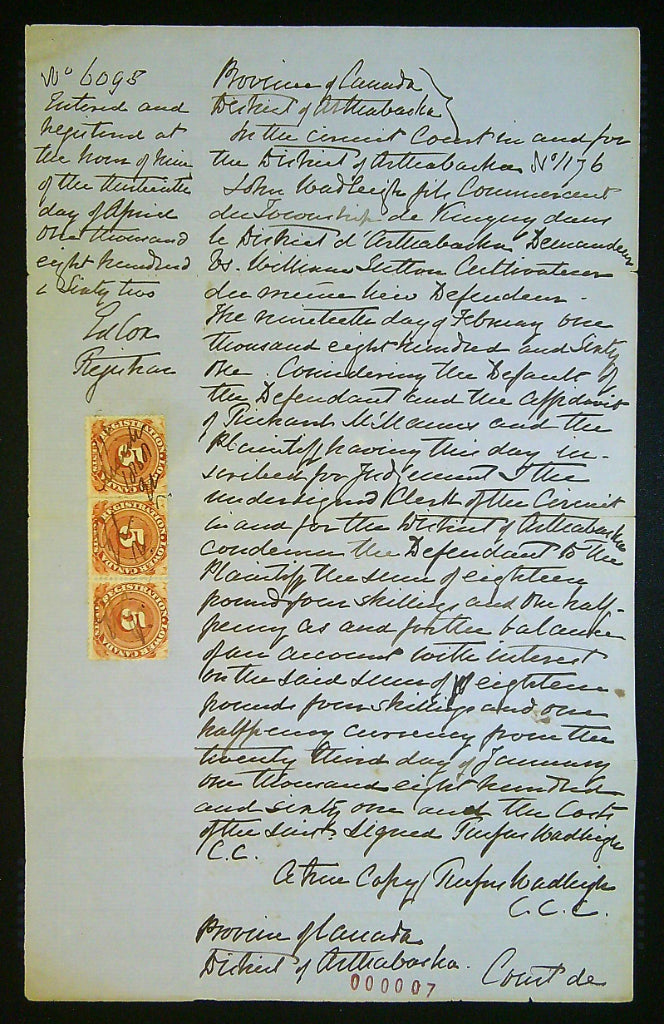 No 6095
Entered and
registered at
the hour of nine
of the thirteenth
day of April
one thousand
eight hundred
& sixty two
Ed Cox
Registrar
REGISTRATION
5
LOWER CANADA
REGISTRATION
5
LOWER CANADA
REGISTRATION
5
LOWER CANADA
Province of Canada
District of Arthabaska
In the circuit Court in and for
the District of Arthabaska No 1176
John Wadleigh fils Commercent
du Township de Kingsey dans
le District d Arthabaska Demandeur
Vs. William Sutton Cultivateur
du meme lieu Defendeur.
The nineteenth day of February one
thousand eight hundred and sixty
one. Considering the Default of
the Defendant and the affidavit
of Richard and the
Plaintiff having this day in-
scribed for Judgement I the
undersigned Clerk of the Circuit
in and for the District of Arthabaska
condemn the Defendant to the
Plaintiff the sum of eighteen
pounds four shillings and one half-
penny as and for the balance
of an account with interest
on the said sum of eighteen
pounds four shillings and one
halfpenny currency from the
twenty third day of January
one thousand eight hundred
and sixty one and the Costs
of the suit. Signed Rufus Wadleigh
C.C.
A true Copy Rufus Wadleigh
C.C.C.
Province of Canada
District of Arthabaska. Court de
000007